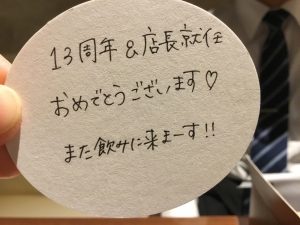 13周年&店長就任
おめでとうございます♡
また飲みに来まーす!!